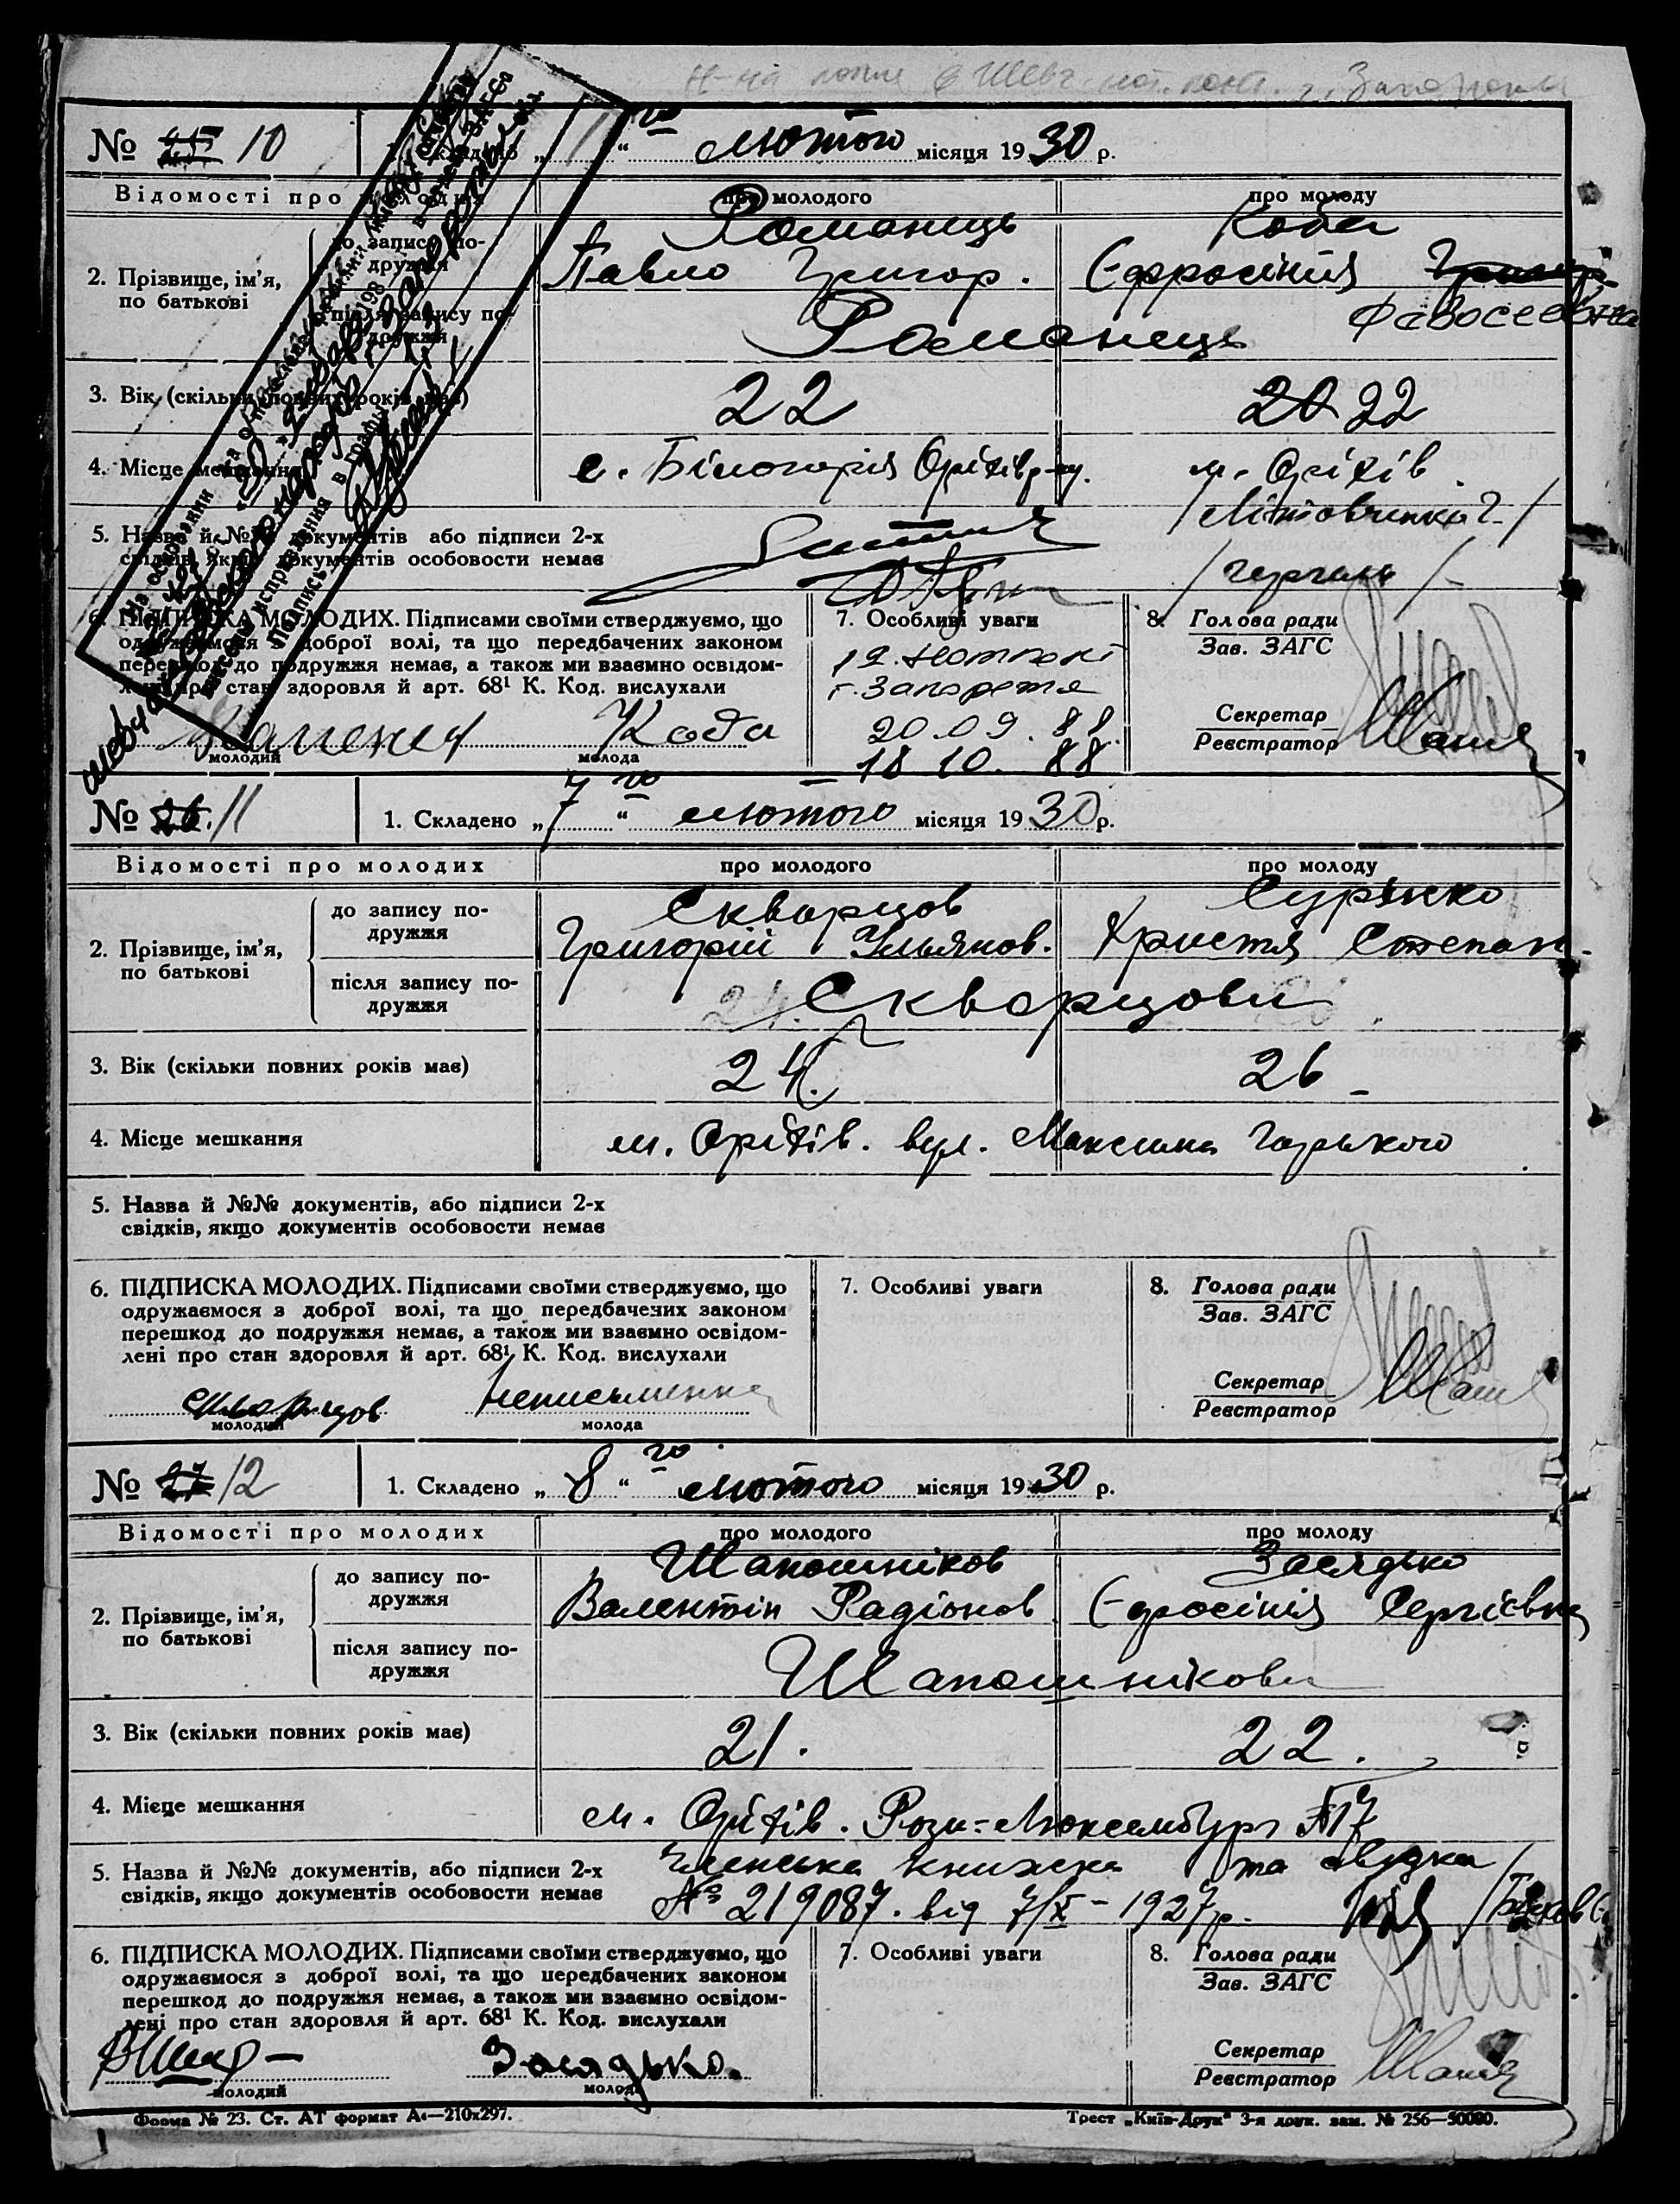 № 10 1. Складено „ “ го лютого місяця 1930 р.
Відомості про молодих про молодого про молоду
Романець Коба
до запису по-
дружжя
2. Прізвище, ім’я,
по батькові
Павло Григор. Єфросінія
Февосеевна
після запису по-
дружжя
Романець
3. Вік (скільки повних років має) 22 20 22
4. Місце мешкання с. Білогорія Оріхів р-ну. м. Оріхів
5. Назва й №№ документів або підписи 2-х
свідків, якщо документів особовости немає
6. ПІДПИСКА МОЛОДИХ. Підписами своїми стверджуємо, що
одружаємося з доброї волі, та що передбачених законом
перешкод до подружжя немає, а також ми взаємно освідом-
лені про стан здоровля й арт. 68¹ К. Код. вислухали
Коба
молодий молода
7. Особливі уваги
г. Запорожья
20.09.88
18 10. 88
8. Голова ради
Зав. ЗАГС
Секретар
Реєстратор
№ 26. 11 1. Складено „7“ го лютого місяця 1930 р.
Відомості про молодих про молодого про молоду
Скварцов
до запису по-
дружжя
2. Прізвище, ім’я,
по батькові
Григорій Ульянов. Христя Степан-
після запису по-
дружжя
24. Скварцови
3. Вік (скільки повних років має) 24. 26
4. Місце мешкання м. Оріхів. вул. Максима Горького
5. Назва й №№ документів, або підписи 2-х
свідків, якщо документів особовости немає
6. ПІДПИСКА МОЛОДИХ. Підписами своїми стверджуємо, що
одружаємося з доброї волі, та що передбачених законом
перешкод до подружжя немає, а також ми взаємно освідом-
лені про стан здоровля й арт. 68¹ К. Код. вислухали
скварцов неписьменна
молодий молода
7. Особливі уваги
8. Голова ради
Зав. ЗАГС
Секретар
Реєстратор
№ 27 12 1. Складено „8“ го лютого місяця 1930 р.
Відомості про молодих про молодого про молоду
Шапошніков Засядько
до запису по-
дружжя
2. Прізвище, ім’я,
по батькові
Валентін Радіонов. Єфросінія Сергієвна
після запису по-
дружжя
Шапошнікови
3. Вік (скільки повних років має) 21. 22.
4. Місце мешкання м. Оріхів. Рози-Люксембург №17
5. Назва й №№ документів, або підписи 2-х
свідків, якщо документів особовости немає
Членська книжка та свідка
№ 219087. від 7/X-1927 р.
6. ПІДПИСКА МОЛОДИХ. Підписами своїми стверджуємо, що
одружаємося з доброї волі, та що передбачених законом
перешкод до подружжя немає, а також ми взаємно освідом-
лені про стан здоровля й арт. 68¹ К. Код. вислухали
Засядько.
молодий молода
7. Особливі уваги
8. Голова ради
Зав. ЗАГС
Секретар
Реєстратор
Форма № 23. Ст. АТ формат А₄—210х297. Трест „Київ-Друк“ 3-я друк. зам. № 256—50000.